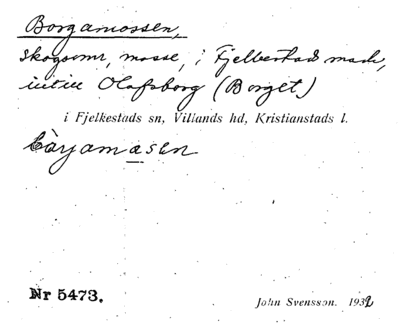 Borgamossen,
skogsomr, mosse, i Fjelkestads mark,
intill Olofsborg (Borget)
i Fjelkestads sn, Villands hd, Kristianstads l.
bàrjamasen
Nr 5473.
John Svensson. 1932